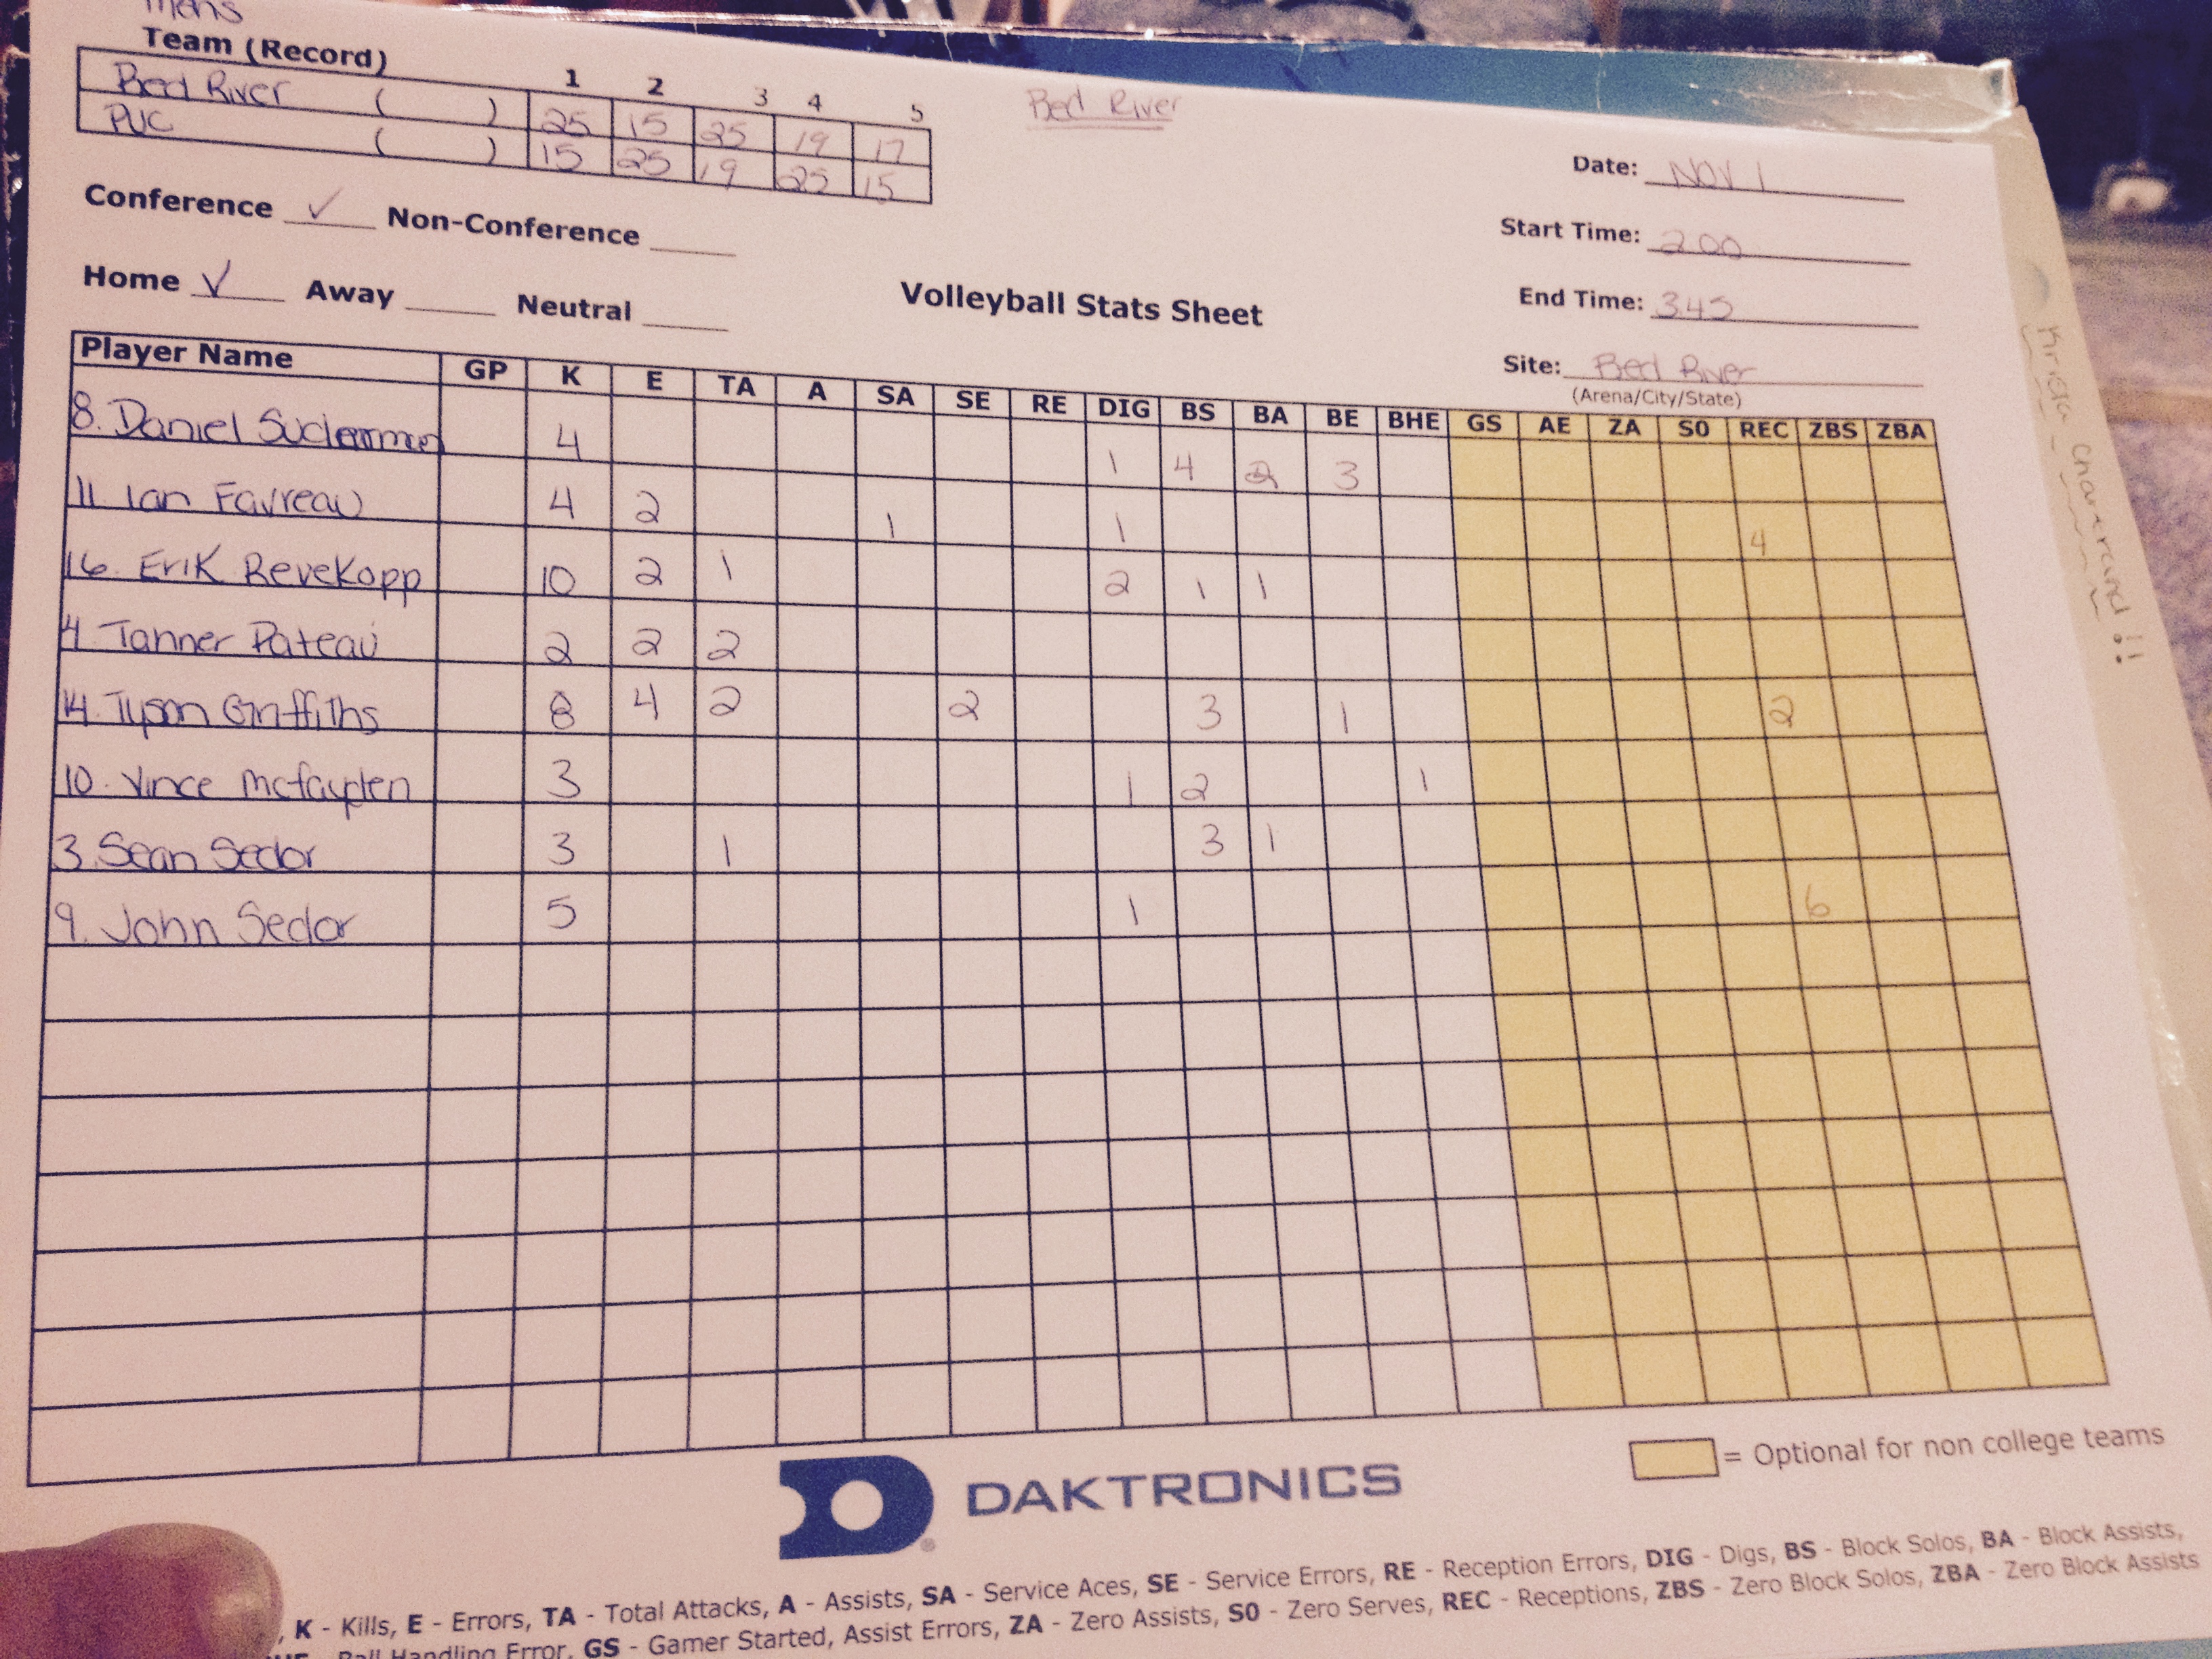 Mens
Team (Record) 1 2 3 4 5
Red River ( ) 25 15 25 19 17
PUC ( ) 15 25 19 25 15
Red River
Date: NOV 1
Conference ✓ Non-Conference
Start Time: 200
Home ✓ Away Neutral
Volleyball Stats Sheet
End Time: 345
Site: Red River
(Arena/City/State)
Player Name GP K E TA A SA SE RE DIG BS BA BE BHE GS AE ZA S0 REC ZBS ZBA
8. Daniel 4 1 4 2 3
11. Ian Favreau 4 2 1 1 4
16. Erik Revekopp 10 2 1 2 1 1
4. Tanner Pateau 2 2 2
14. Tyson Griffiths 8 4 2 2 3 1 2
10. Vince Mcfayden 3 1 2 1
3. Sean Sedor 3 1 3 1
9. John Sedor 5 1 6
Krista Chartrand!!
= Optional for non college teams
DAKTRONICS
, K - Kills, E - Errors, TA - Total Attacks, A - Assists, SA - Service Aces, SE - Service Errors, RE - Reception Errors, DIG - Digs, BS - Block Solos, BA - Block Assists,
Ball Handling Error, GS - Gamer Started, Assist Errors, ZA - Zero Assists, S0 - Zero Serves, REC - Receptions, ZBS - Zero Block Solos, ZBA - Zero Block Assists